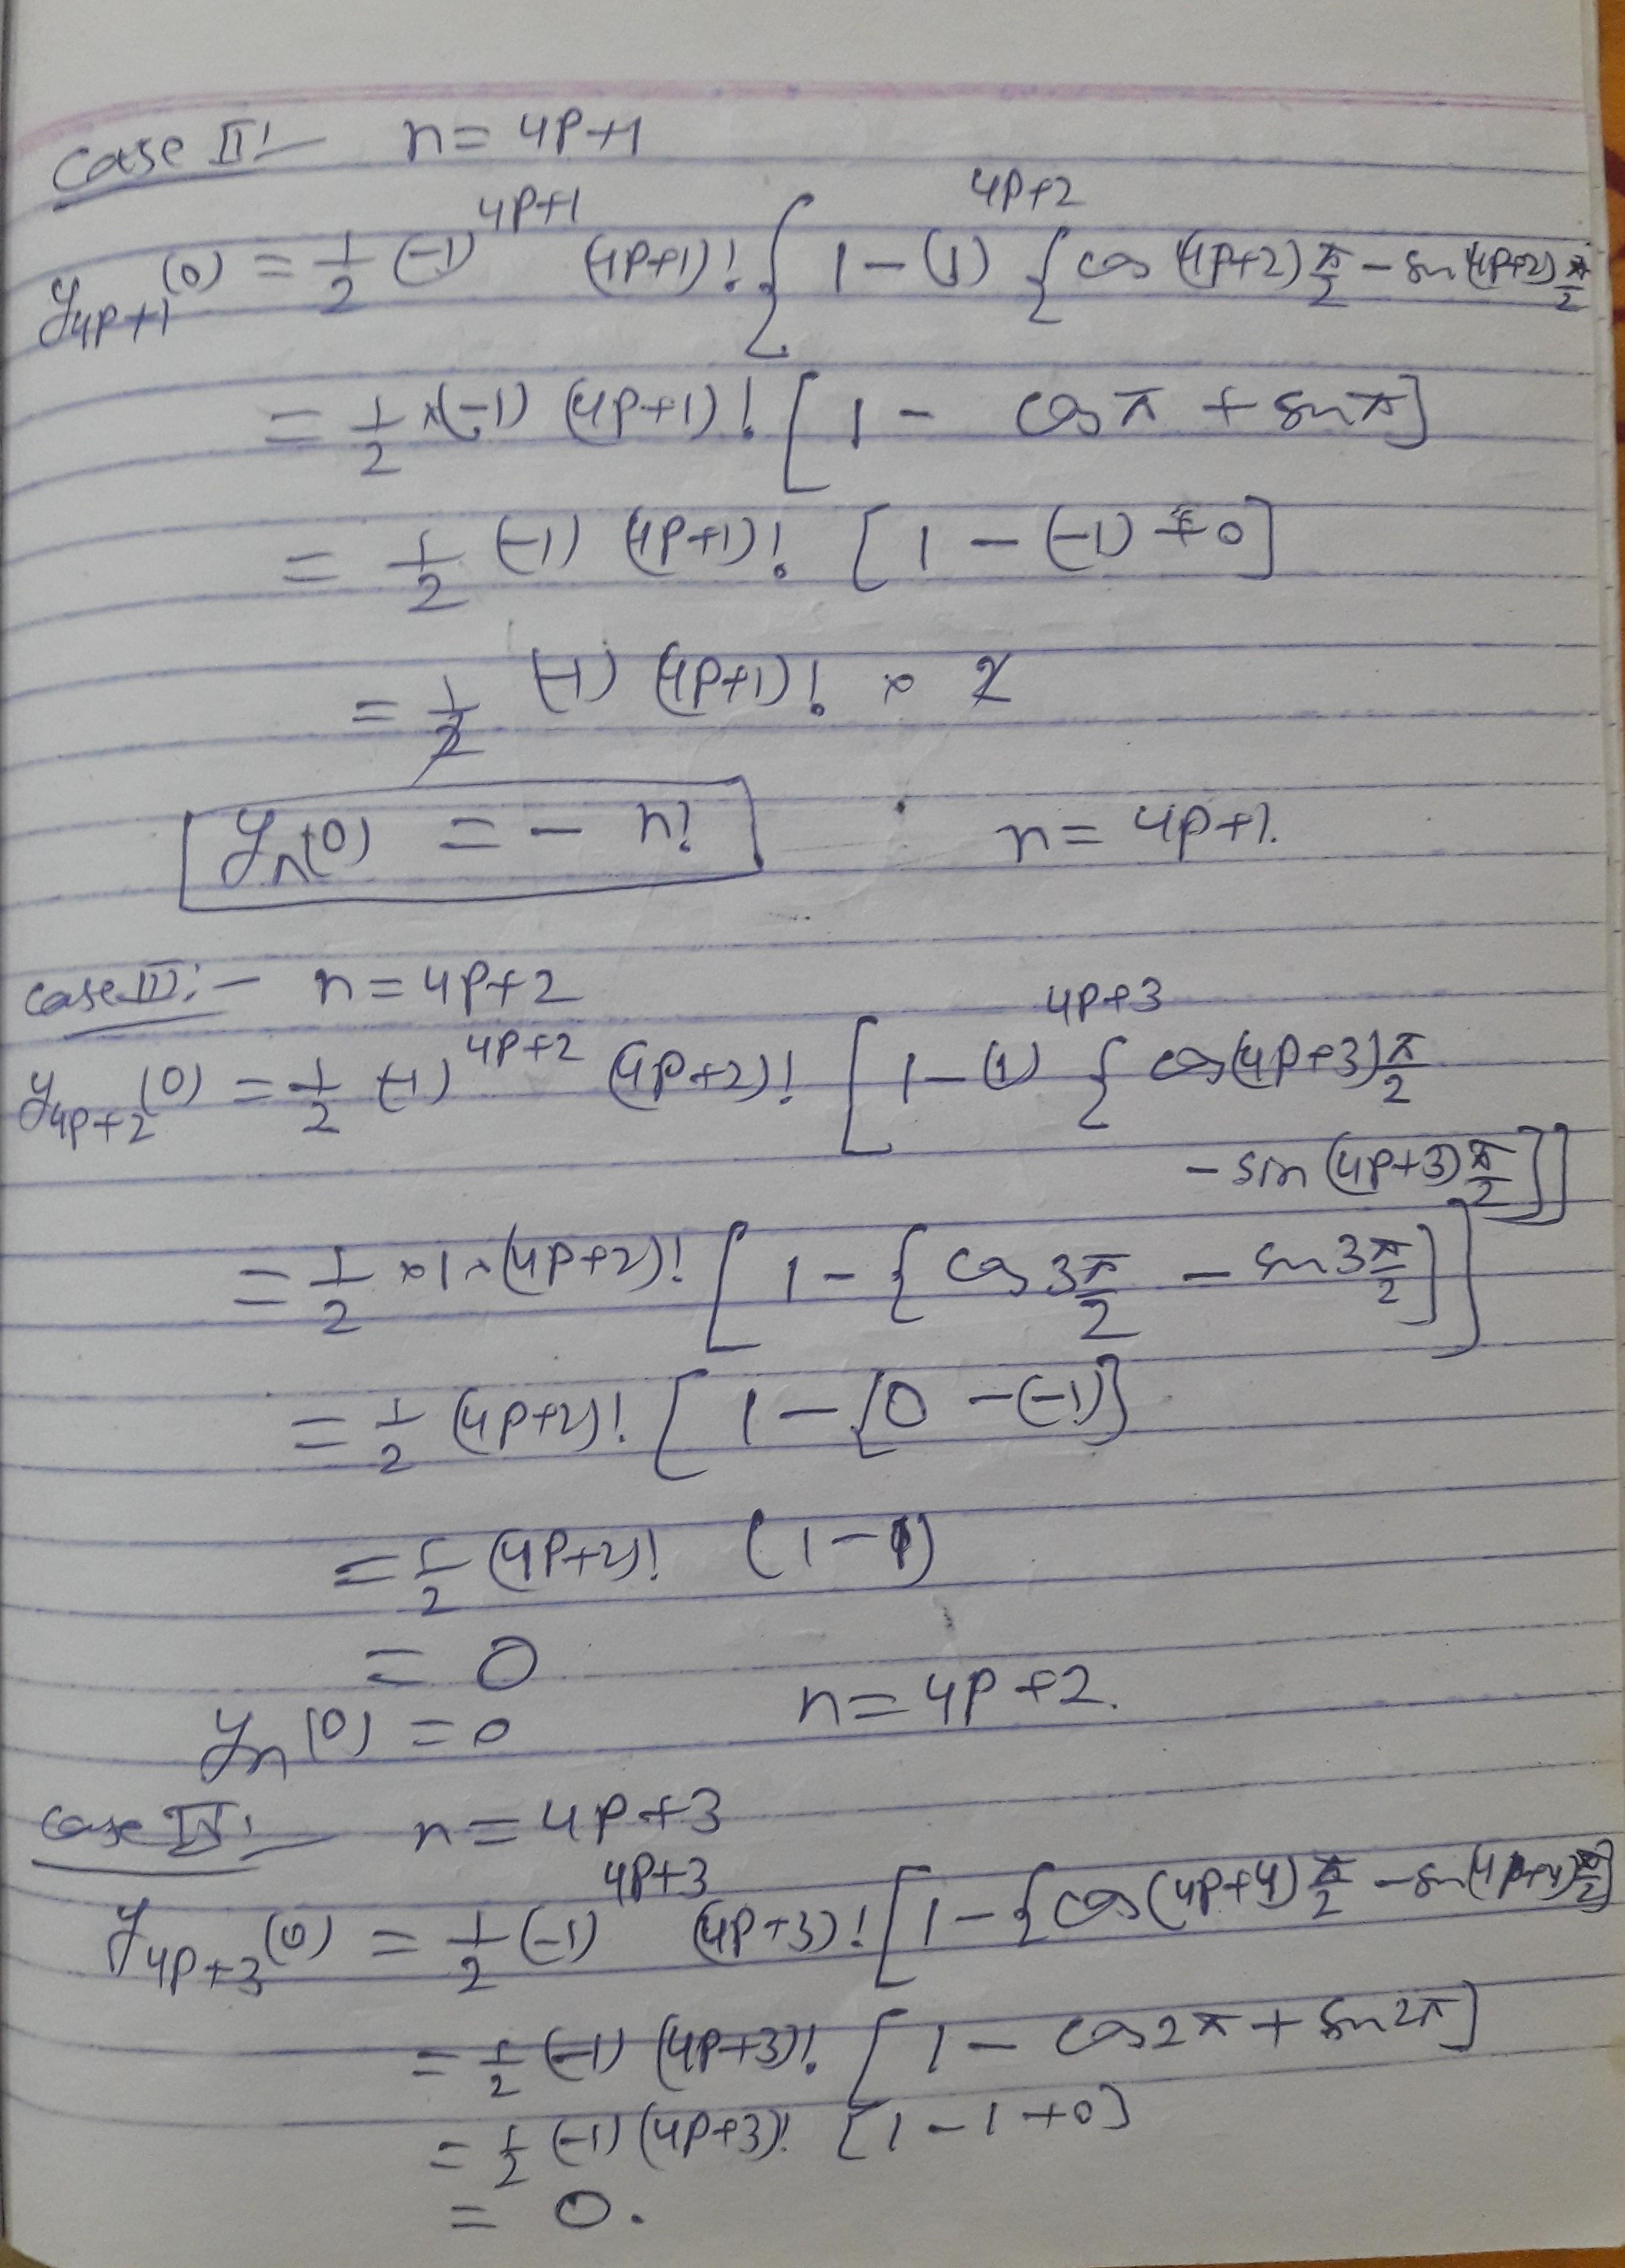 Case II:- n = 4p+1
y_{4p+1}(0) = 1/2 (-1)^{4p+1} (4p+1)! { 1 - (1)^{4p+2} { cos (4p+2) π/2 - sin (4p+2) π/2
= 1/2 × (-1) (4p+1)! [ 1 - cos π + sin π ]
= 1/2 (-1) (4p+1)! [ 1 - (-1) + 0 ]
= 1/2 (-1) (4p+1)! × 2
y_n(0) = - n! n = 4p+1.
Case III:- n = 4p+2
y_{4p+2}(0) = 1/2 (-1)^{4p+2} (4p+2)! [ 1 - (1)^{4p+3} { cos (4p+3) π/2
- sin (4p+3) π/2 } ]
= 1/2 × 1 × (4p+2)! [ 1 - { cos 3π/2 - sin 3π/2 } ]
= 1/2 (4p+2)! [ 1 - {0 - (-1)}
= 1/2 (4p+2)! (1 - 1)
= 0
n = 4p+2.
y_n(0) = 0
Case IV:- n = 4p+3
y_{4p+3}(0) = 1/2 (-1)^{4p+3} (4p+3)! [ 1 - { cos (4p+4) π/2 - sin (4p+4) π/2 ]
= 1/2 (-1) (4p+3)! [ 1 - cos 2π + sin 2π ]
= 1/2 (-1) (4p+3)! [ 1 - 1 + 0 ]
= 0.